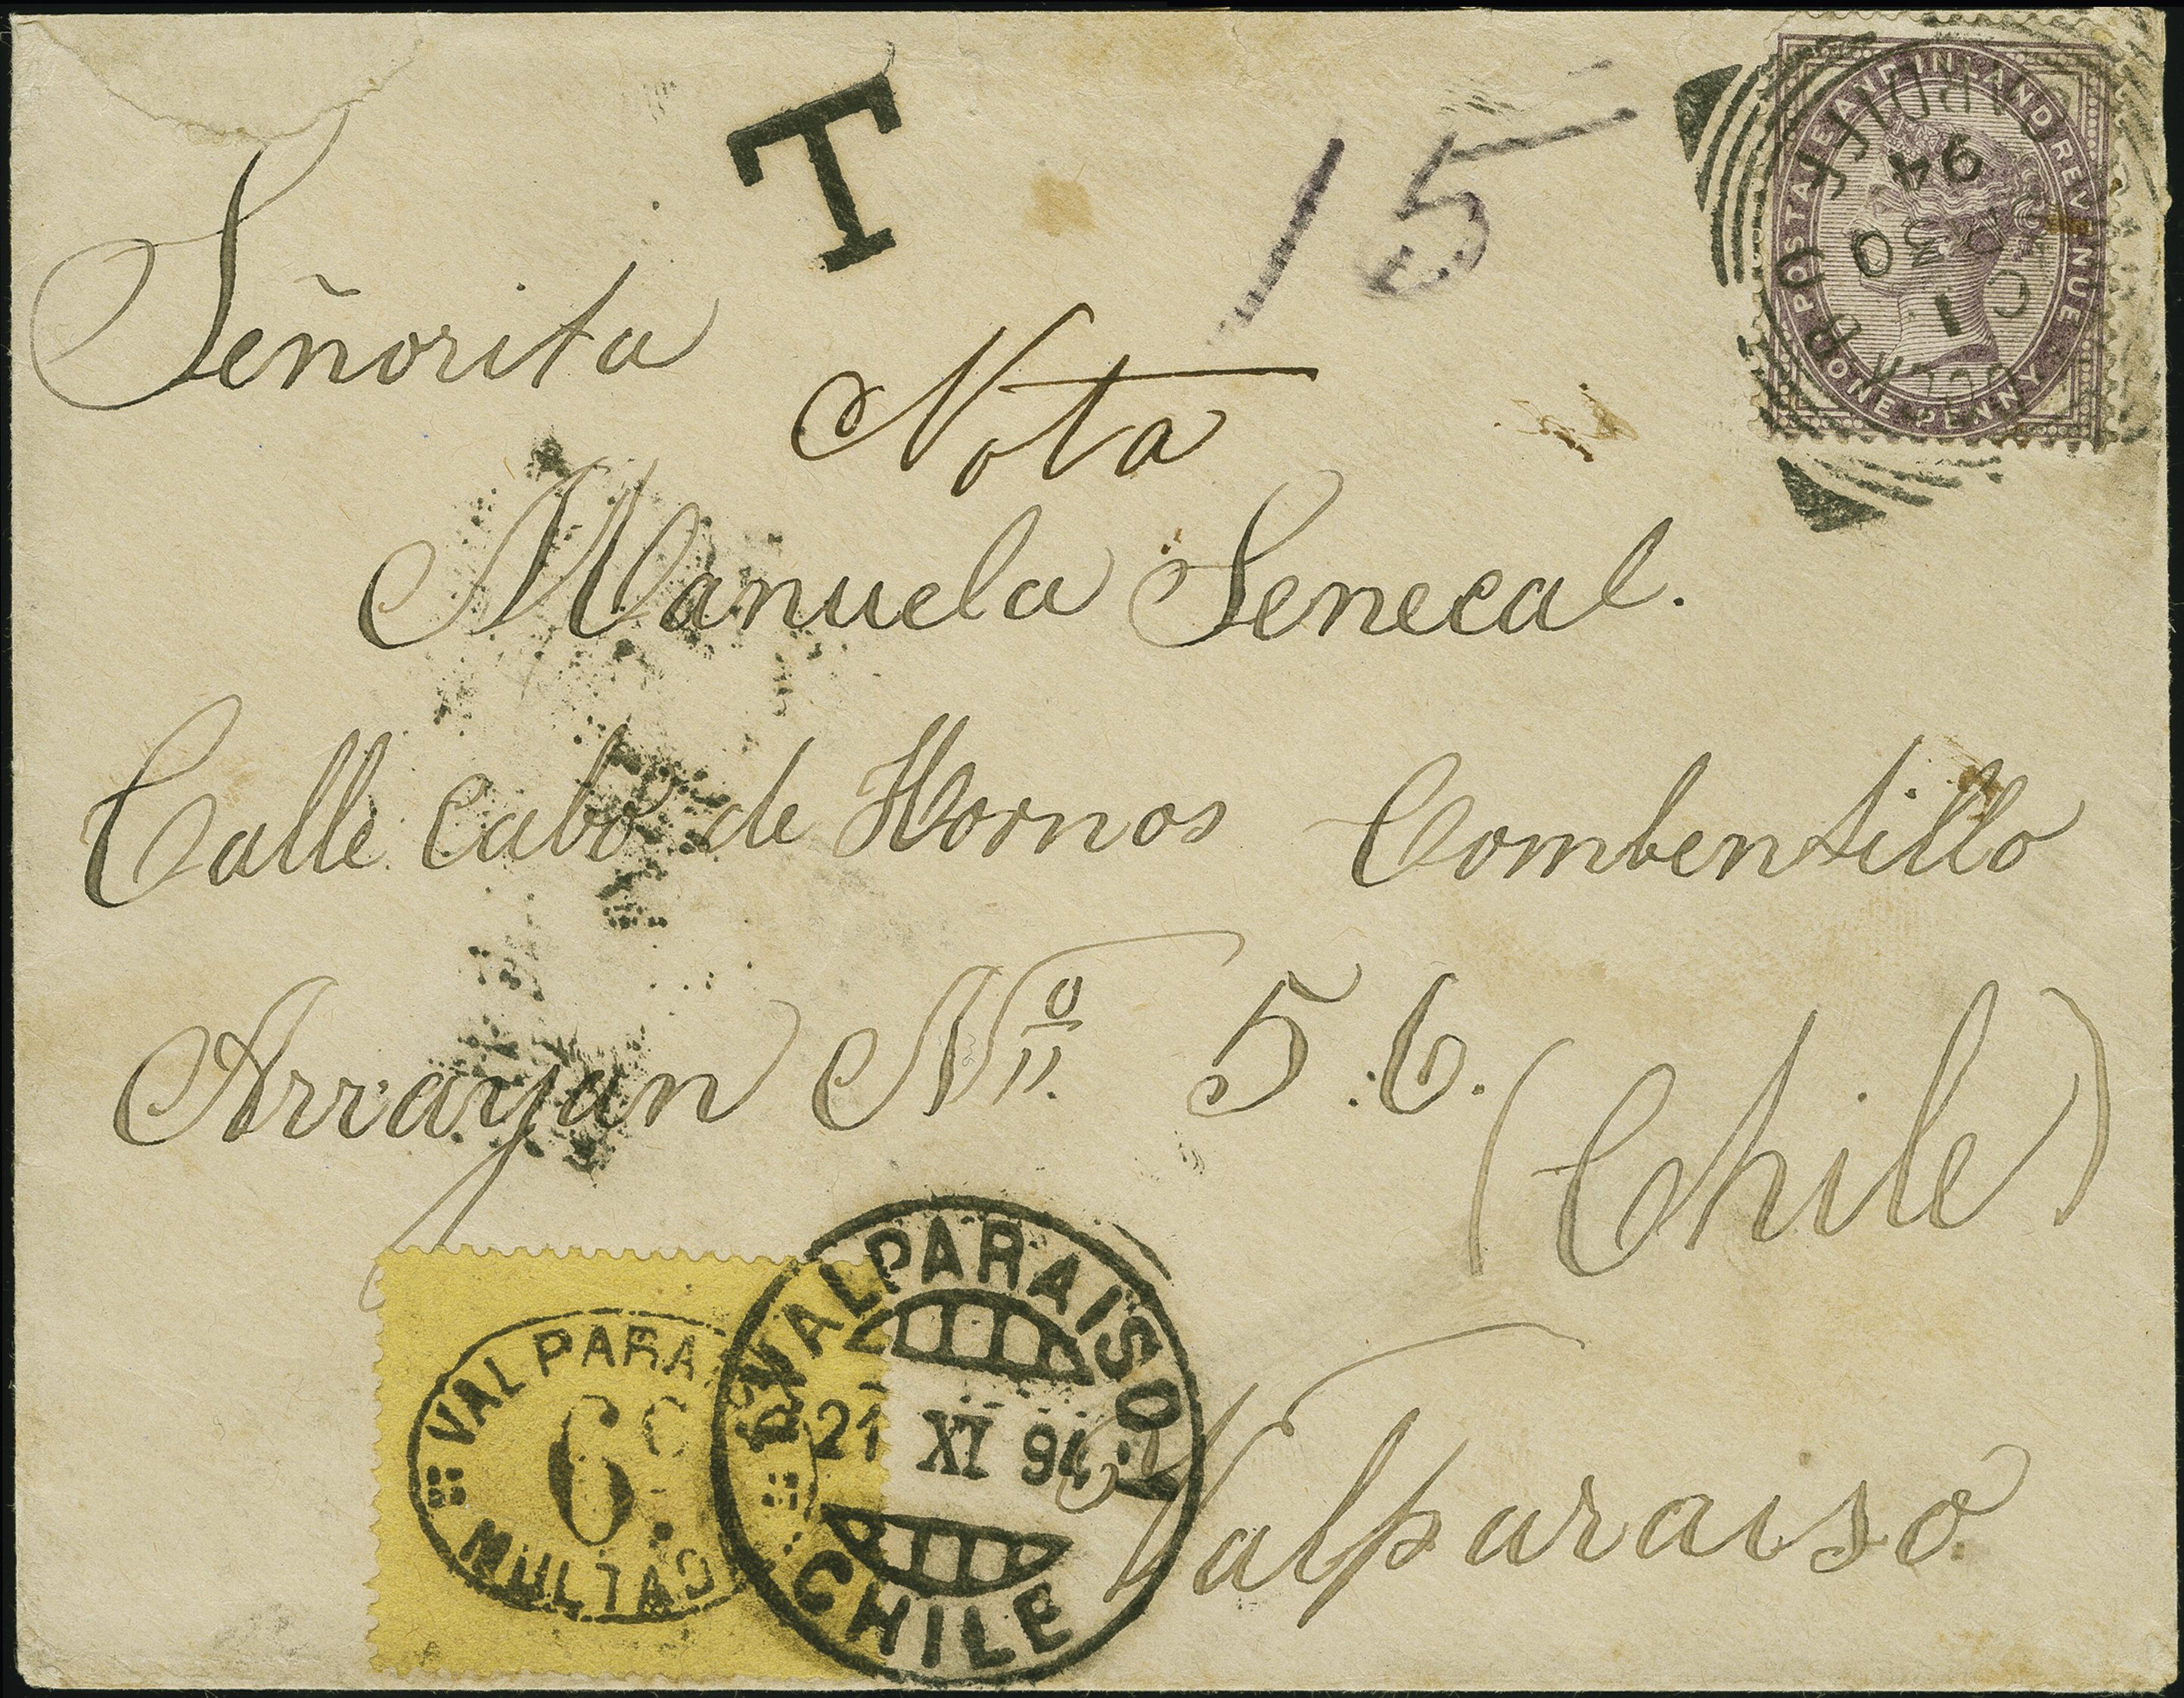 T
15
POSTAGE AND INLAND REVENUE
ONE PENNY
94
30
Señorita
Nota
Manuela Senecal.
Calle Cabo de Hornos Combentillo
Arrayan Nº 56.
(Chile)
Valparaiso
VALPARA
6c
MULTAS
VALPARAISO
21 XI 94
CHILE